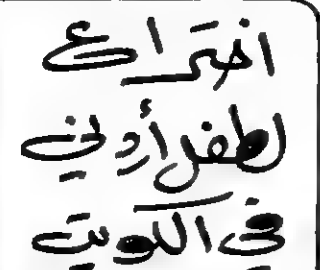 اختراع
لطفل أردني
في الكويت